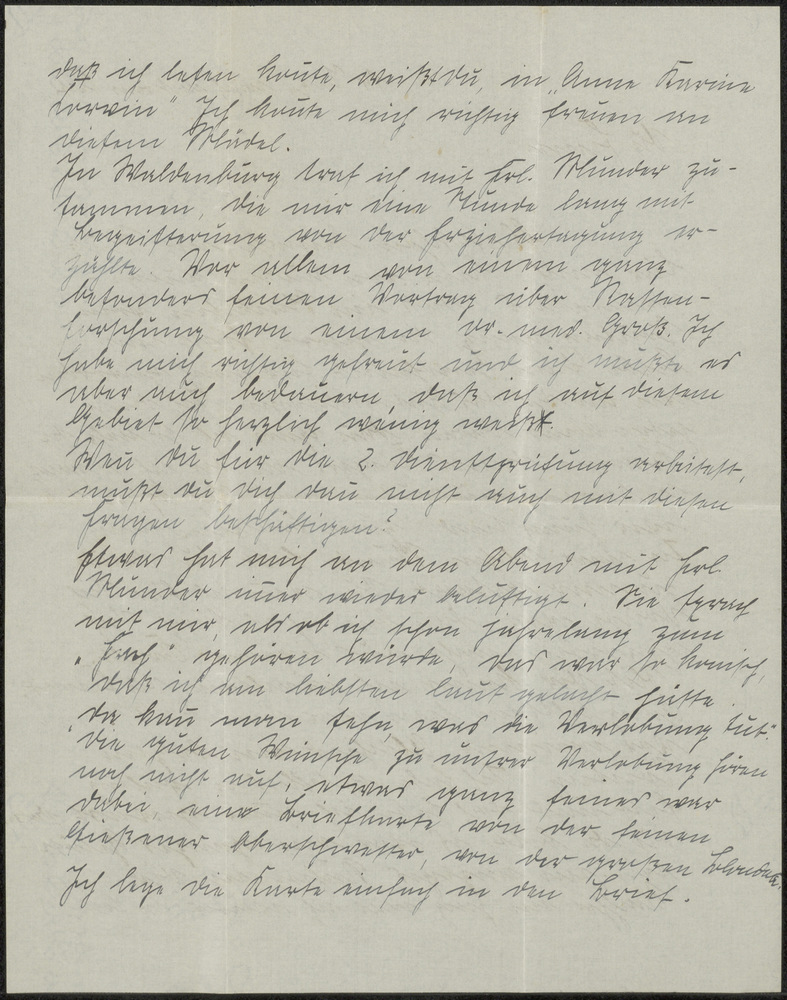 daß ich lesen konte, weißt du, in „Anne Karine
Corvin" Ich konte mich richtig freuen an
diesem Mädel.
In Waldenburg traf ich mit Frl. Munder zu-
sammen, die mir eine Stunde lang mit
Begeisterung von der Erziehertagung er-
zählte. Vor allem von einem ganz
besonders feinen Vortrag über Rassen-
forschung von einem Dr. med. Groß. Ich
habe mich richtig gefreut und ich mußte es
aber auch bedauern, daß ich auf diesem
Gebiet so herzlich wenig weiß.
Wen du für die 2. Dienstprüfung arbeitest,
mußt du dich dan nicht auch mit diesen
Fragen beschäftigen?
Etwas hat mich an dem Abend mit Frl.
Munder imer wieder belustigt. Sie sprach
mit mir, als ob ich schon jahrelang zum
„Fach" gehören würde, das war so komisch,
daß ich am liebsten laut gelacht hätte.
„Da kan man sehn, was die Verlobung tut."
Die guten Wünsche zu unsrer Verlobung hören
noch nicht auf, etwas ganz feines war
dabei, eine Briefkarte von der feinen
Gießener Oberschwester, von der großen Blonden.
Ich lege die Karte einfach in den Brief.